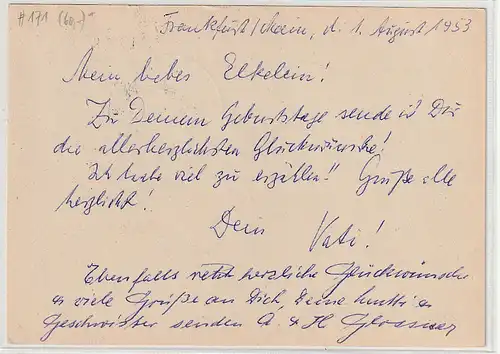 #171 (60,-)
Frankfurt/Main, d. 1. August 1953
Mein liebes Elkelein!
Zu Deinem Geburtstage sende ich Dir
die allerherzlichsten Glückwünsche!
Ich habe viel zu erzählen!! Grüße alle
herzlichst!
Dein
Vati!
Ebenfalls recht herzliche Glückwünsche
u viele Grüße an Dich, Deine Mutti u
Geschwister senden A. & H